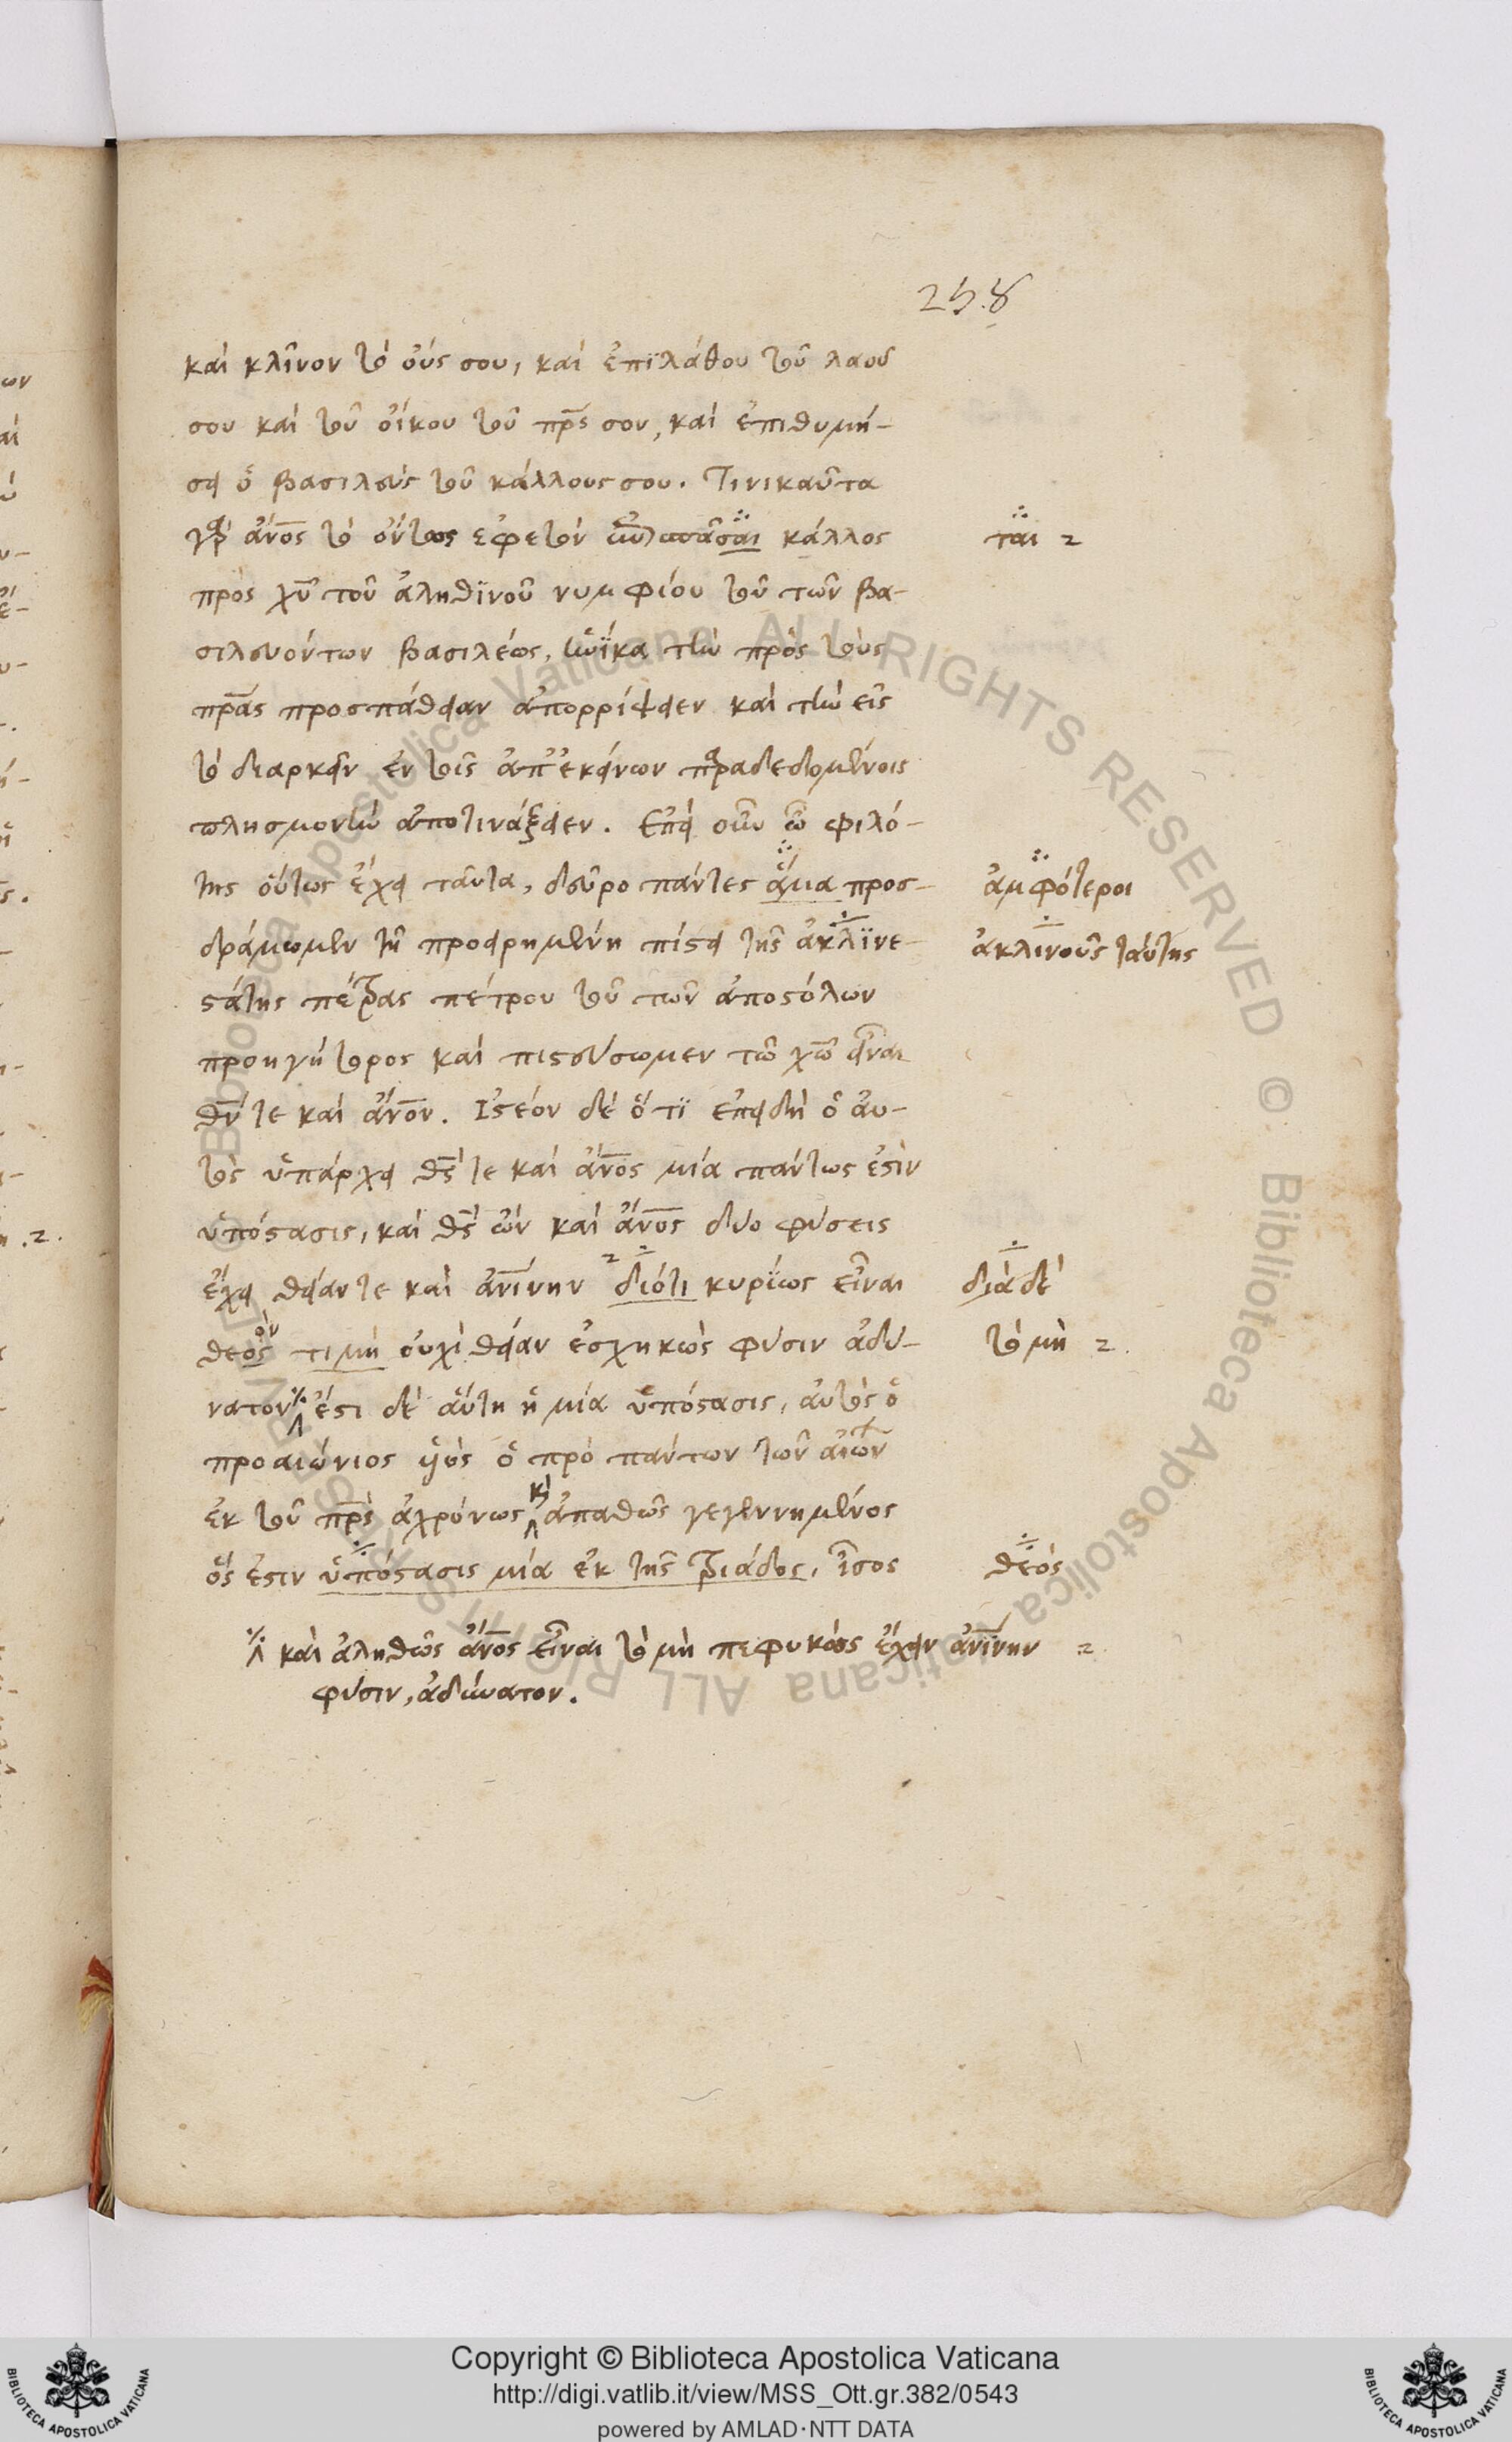 258
καὶ κλῖνον τὸ οὖς σου, καὶ ἐπϊλάθου τοῦ λαοῦ
σου καὶ τοῦ οἴκου τοῦ πρ̅ς σου, καὶ ἐπιθυμή-
σει ὁ βασιλεὺς τοῦ κάλλους σου. Τινικαῦτα
γὰρ ἄνο̅ς τὸ ὄντως ἐφετὸν κάλλος
ται
πρὸς χυ̅ τοῦ ἀληθϊνοῦ νυμφίου τοῦ τῶν βα-
σιλευόντων βασιλέως, ἡνΐκα τὴν πρὸς τοὺς
πρ̅ας προσπάθειαν ἀπορρίψειεν καὶ τὴν εἰς
τὸ διαρκεῖν ἐν τοῖς ἀπ' ἐκείνων παραδεδομένοις
πλησμονὴν ἀποτινάξειεν. Ἐπεὶ οὖν ὦ φιλό-
της οὕτως ἔχει ταῦτα, δεῦρο πάντες ἅμα προσ-
ἀμφότεροι
δράμωμεν τῇ προειρημένῃ πίστει τῆς ἀκλϊνε-
ἀκλινοῦς ταύτης
στάτης πέτρας πέτρου τοῦ τῶν ἀποστόλων
προηγήτορος καὶ πιστεύσωμεν τῷ χω̅ εἶναι
θν̅ τε καὶ ἄνο̅ν. Ἰστέον δὲ ὅτϊ ἐπειδὴ ὁ αὐ-
τὸς ὑπάρχει θς̅ τε καὶ ἄνο̅ς μία πάντως ἐστὶν
ὑπόστασις, καὶ θς̅ ὢν καὶ ἄνο̅ς δύο φύσεις
ἔχει θείαν τε καὶ ἀνί̅νην διότι κυρΐως εἶναι
διὰ δὲ
θεὸς ὸν τιμὴ οὐχὶ θείαν ἐσχηκὼς φύσιν ἀδύ-
τὸ μὴ
νατον ἔστι δὲ αὕτη ἡ μία ὑπόστασις, αὐτὸς ὁ
προαιώνιος υἱὸς ὁ πρὸ πάντων τῶν αἰών
ἐκ τοῦ πρ̅ς ἀχρόνως καὶ ἀπαθῶς γεγεννημένος
ὅς ἐστιν ὑπόστασις μία ἐκ τῆς τριάδος, ἴσος
θεὸς
καὶ ἀληθῶς ἄνο̅ς εἶναι τὸ μὴ πεφυκὼς ἔχειν ἀνί̅νην
φύσιν, ἀδύνατον.
Copyright © Biblioteca Apostolica Vaticana
http://digi.vatlib.it/view/MSS_Ott.gr.382/0543
powered by AMLAD·NTT DATA